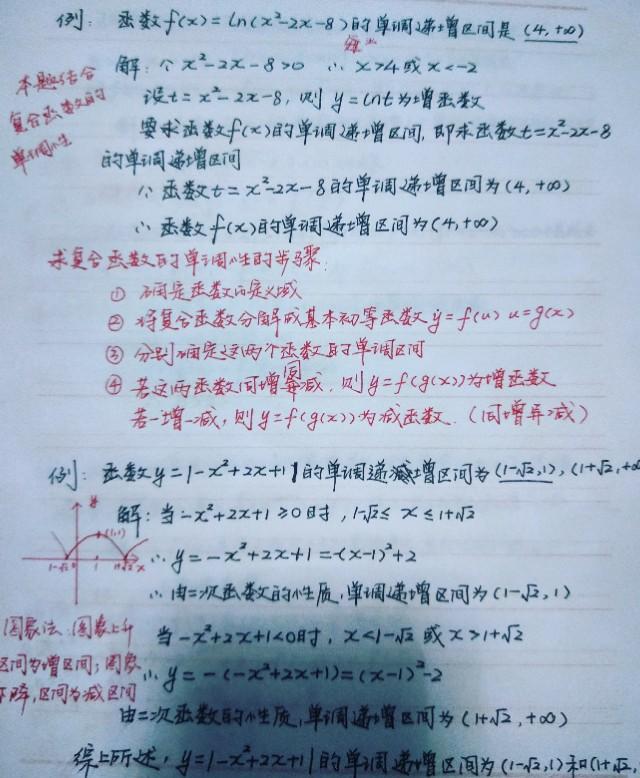 例: 函数f(x)=ln(x²-2x-8)的单调递增区间是(4,+∞)
解: ∵x²-2x-8>0 ∴x>4或x<-2
本题结合
复合函数的
单调性
设t=x²-2x-8,则y=lnt为增函数
要求函数f(x)的单调递增区间,即求函数t=x²-2x-8
的单调递增区间
∵函数t=x²-2x-8的单调递增区间为(4,+∞)
∴函数f(x)的单调递增区间为(4,+∞)
求复合函数的单调性的步骤:
① 确定函数的定义域
② 将复合函数分解成基本初等函数y=f(u) u=g(x)
③ 分别确定这两个函数的单调区间
④ 若这两函数同增同减,则y=f(g(x))为增函数
若一增一减,则y=f(g(x))为减函数.(同增异减)
例: 函数y=|-x²+2x+1|的单调递增区间为(1-√2,1),(1+√2,+∞
解:当-x²+2x+1≥0时,1-√2≤x≤1+√2
y
(1,1)
1-√2 0 1 1+√2 x
∴y=-x²+2x+1=-(x-1)²+2
∴由二次函数的性质,单调递增区间为(1-√2,1)
图象法:图象上升
区间为增区间;图象
下降,区间为减区间
当-x²+2x+1<0时,x<1-√2或x>1+√2
∴y=-(-x²+2x+1)=(x-1)²-2
由二次函数的性质,单调递增区间为(1+√2,+∞)
综上所述,y=|-x²+2x+1|的单调递增区间为(1-√2,1)和(1+√2,